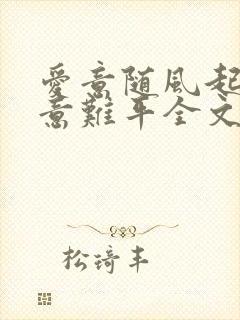 愛意随風起
意難平全文
松琦丰